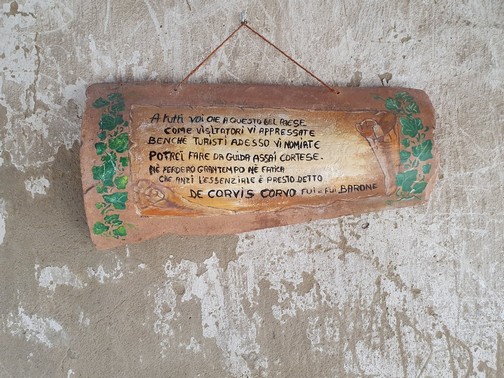 A tutti voi che a questo bel paese
come visitatori vi appressate
benché turisti adesso vi nomiate
potrei fare da guida assai cortese.
né perderò gran tempo né fatica
che anzi l'essenziale è presto detto
De Corvis Corvo fui e fui Barone